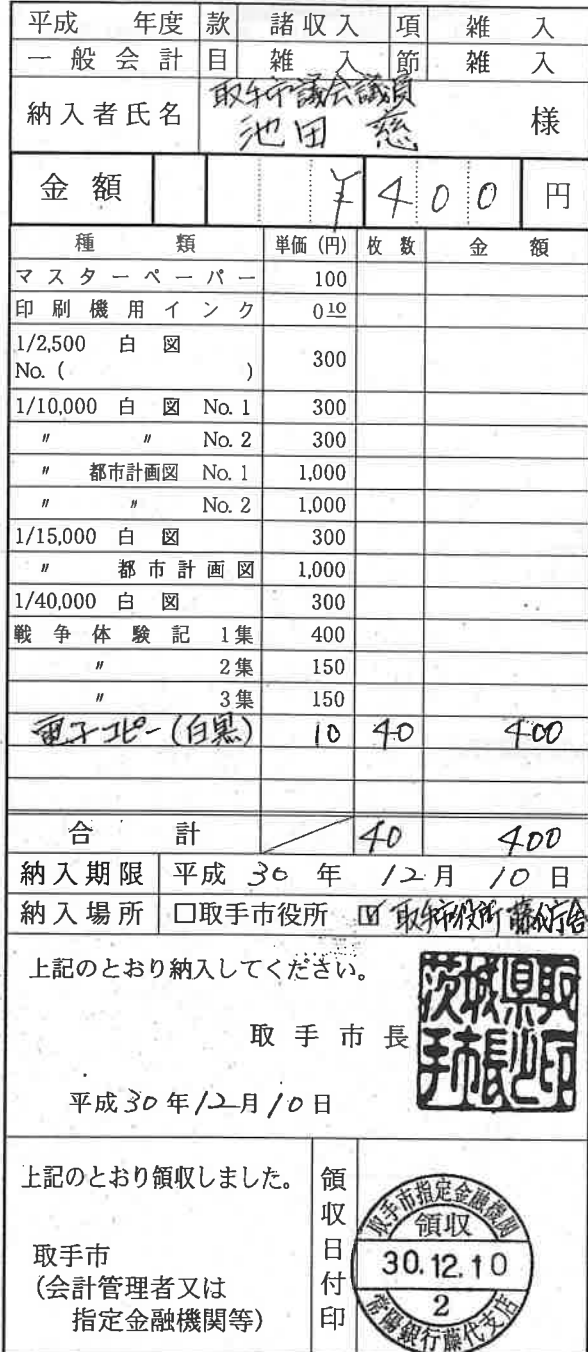 平成 年度 款 諸収入 項 雑入
一般会計 目 雑入 節 雑入
納入者氏名 取手市議会議員
池田 慈 様
金額 ¥400円
種類 単価(円) 枚数 金額
マスターペーパー 100
印刷機用インク 010
1/2,500 白図 300
No.( )
1/10,000 白図 No.1 300
〃 〃 No.2 300
〃 都市計画図 No.1 1,000
〃 〃 No.2 1,000
1/15,000 白図 300
〃 都市計画図 1,000
1/40,000 白図 300
戦争体験記 1集 400
〃 2集 150
〃 3集 150
電子コピー(白黒) 10 40 400
合計 40 400
納入期限 平成30年12月10日
納入場所 □取手市役所 ☑取手市役所藤代庁舎
上記のとおり納入してください。
取手市長
茨城県取
手市長之印
平成30年12月10日
上記のとおり領収しました。
取手市
(会計管理者又は
指定金融機関等)
領収日付印
取手市指定金融機関
領収
30.12.10
2
常陽銀行藤代支店